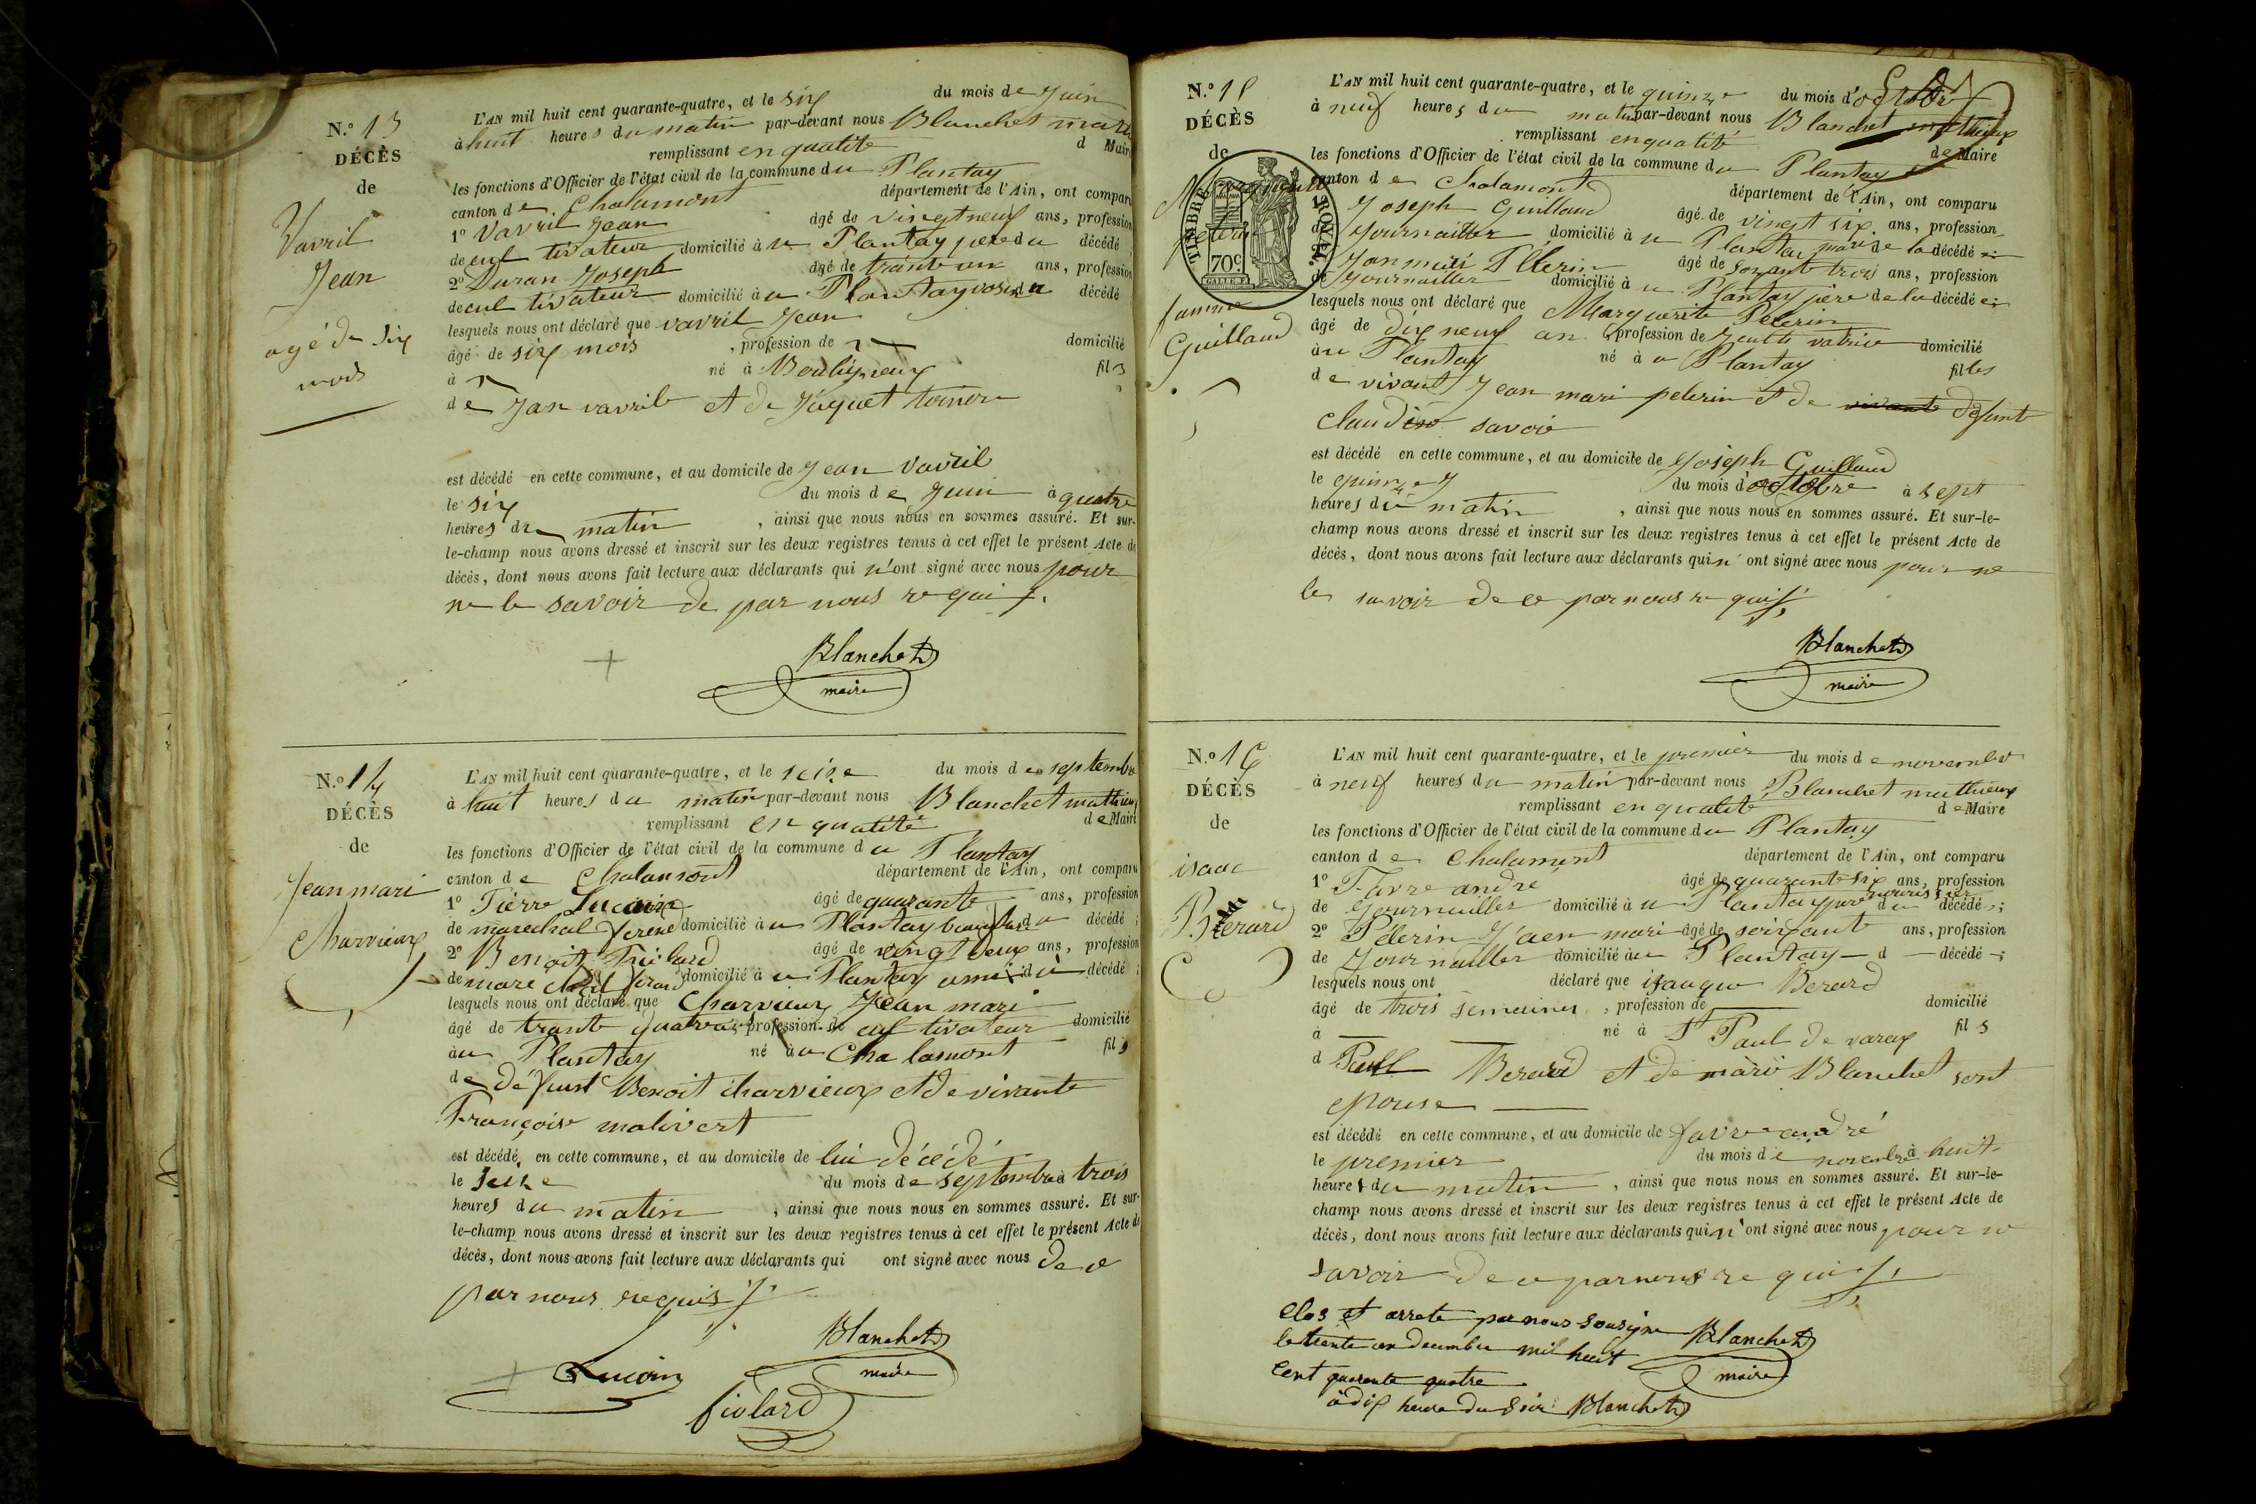 N.º 13
DÉCÈS
de
Vavril
Jean
agé de six
mois
L'AN mil huit cent quarante-quatre, et le six du mois de Juin
à huit heures du matin par-devant nous Blanchet
remplissant en qualité de Maire
les fonctions d'Officier de l'état civil de la commune du Plantay
canton de Chalamont département de l'Ain, ont comparu
1º Vavril Jean âgé de vingt neuf ans, profession
de cul tivateur domicilié à u Plantay pere du décédé
2º Duran Joseph âgé de trante un ans, profession
de cul tivateur domicilié à u Plantay voisin du décédé
lesquels nous ont déclaré que vavril Jean
âgé de six mois, profession de domicilié
à né à Bouligneux fils
de Jan vavril et de Jaquet toinon
est décédé en cette commune, et au domicile de Jean Vavril
le six du mois de Juin à quatre
heures du matin, ainsi que nous nous en sommes assuré. Et sur-
le-champ nous avons dressé et inscrit sur les deux registres tenus à cet effet le présent Acte de
décès, dont nous avons fait lecture aux déclarants qui n'ont signé avec nous pour
ne le savoir de par nous re quis.
Blanchet
maire
N.º 14
DÉCÈS
de
Jean mari
Charvieux
L'AN mil huit cent quarante-quatre, et le seize du mois de septembre
à huit heures du matin par-devant nous Blanchet mathieux
remplissant en qualité de Maire
les fonctions d'Officier de l'état civil de la commune du Plantay
canton de Chalamont département de l'Ain, ont comparu
1º Pierre âgé de quarante ans, profession
de marechal domicilié à u Plantay du décédé;
2º Benoit âgé de vingt deux ans, profession
de domicilié à u Plantay ami du décédé;
lesquels nous ont déclaré que Charvieux Jean mari
âgé de trante quatre, profession de cul tivateur domicilié
à u Plantay né à u Chalamont fils
de défunt Benoit charvieux et de vivante
Françoise malivert
est décédé en cette commune, et au domicile de lui décédé
le seize du mois de septembre à trois
heures du matin, ainsi que nous nous en sommes assuré. Et sur-
le-champ nous avons dressé et inscrit sur les deux registres tenus à cet effet le présent Acte de
décès, dont nous avons fait lecture aux déclarants qui ont signé avec nous de ce
par nous requis
Blanchet
maire
Lucain
fiolard
N.º 15
DÉCÈS
de
TIMBRE ROYAL
70c
femme
Guilland
L'AN mil huit cent quarante-quatre, et le quinze du mois d'octobre
à neuf heures du matin par-devant nous Blanchet mathieux
remplissant en qualité de Maire
les fonctions d'Officier de l'état civil de la commune du Plantay
canton de Chalamont département de l'Ain, ont comparu
Joseph Guilland âgé de vingt six ans, profession
Journailler domicilié à u Plantay mari de la décédée
Janmari Pelerin âgé de soixante trois ans, profession
de Journailler domicilié à u Plantay père de la décédée;
lesquels nous ont déclaré que Marguerite Pelerin
âgé de dix neuf an, profession de domicilié
à u Plantay né à u Plantay filles
de vivant Jean mari pelerin et de vivante défunte
Claudine savoie
est décédé en cette commune, et au domicile de Joseph Guilland
le quinze du mois d'octobre à sept
heures du matin, ainsi que nous nous en sommes assuré. Et sur-le-
champ nous avons dressé et inscrit sur les deux registres tenus à cet effet le présent Acte de
décès, dont nous avons fait lecture aux déclarants qui n'ont signé avec nous pour ne
le savoir de ce par nous re quis
Blanchet
maire
N.º 16
DÉCÈS
de
isaac
Berard
L'AN mil huit cent quarante-quatre, et le premier du mois de novembre
à neuf heures du matin par-devant nous Blanchet mathieux
remplissant en qualité de Maire
les fonctions d'Officier de l'état civil de la commune du Plantay
canton de Chalamont département de l'Ain, ont comparu
1º Favre andré âgé de quarante six ans, profession
de Journailler domicilié à u Plantay père nourissier du décédé;
2º Pélerin Jaen mari âgé de soixant ans, profession
de Journailler domicilié à u Plantay d décédé;
lesquels nous ont déclaré que Berard
âgé de trois semaines, profession de domicilié
à né à St Paul de varax fils
d Paul Berard et de mari Blanchet sont
epouse
est décédé en cette commune, et au domicile de favre andré
le premier du mois de novembre à huit
heures du matin, ainsi que nous nous en sommes assuré. Et sur-le-
champ nous avons dressé et inscrit sur les deux registres tenus à cet effet le présent Acte de
décès, dont nous avons fait lecture aux déclarants qui n'ont signé avec nous pour ne
savoir de ce par nous re quis
Clos et arrete par nous sousigne Blanchet
le trente un decembre mil huit maire
cent quarante quatre
à dix heure du soir Blanchet